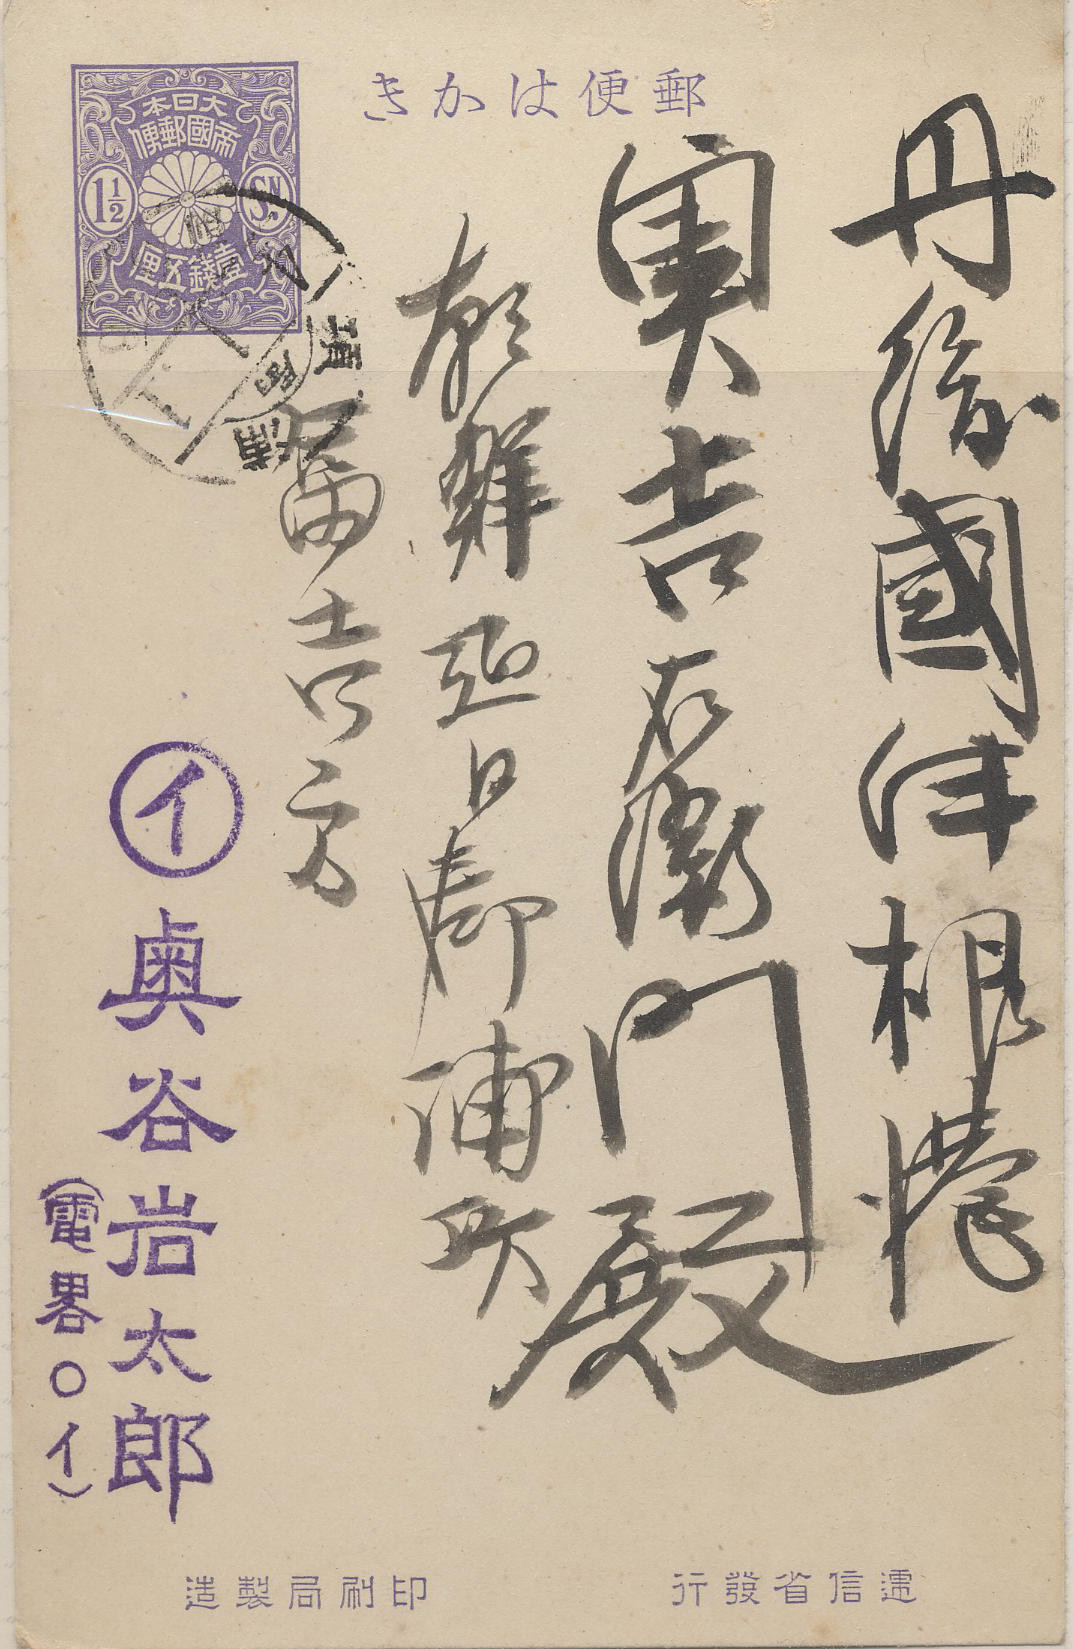 郵便はかき
大日本
帝國郵便
1½ SN.
壹錢五厘
丹後國伊根港
奥吉右衛門殿
朝鮮迎日郡浦項
富吉方
イ
奥谷岩太郎
(電畧〇イ)
遞信省發行
印刷局製造